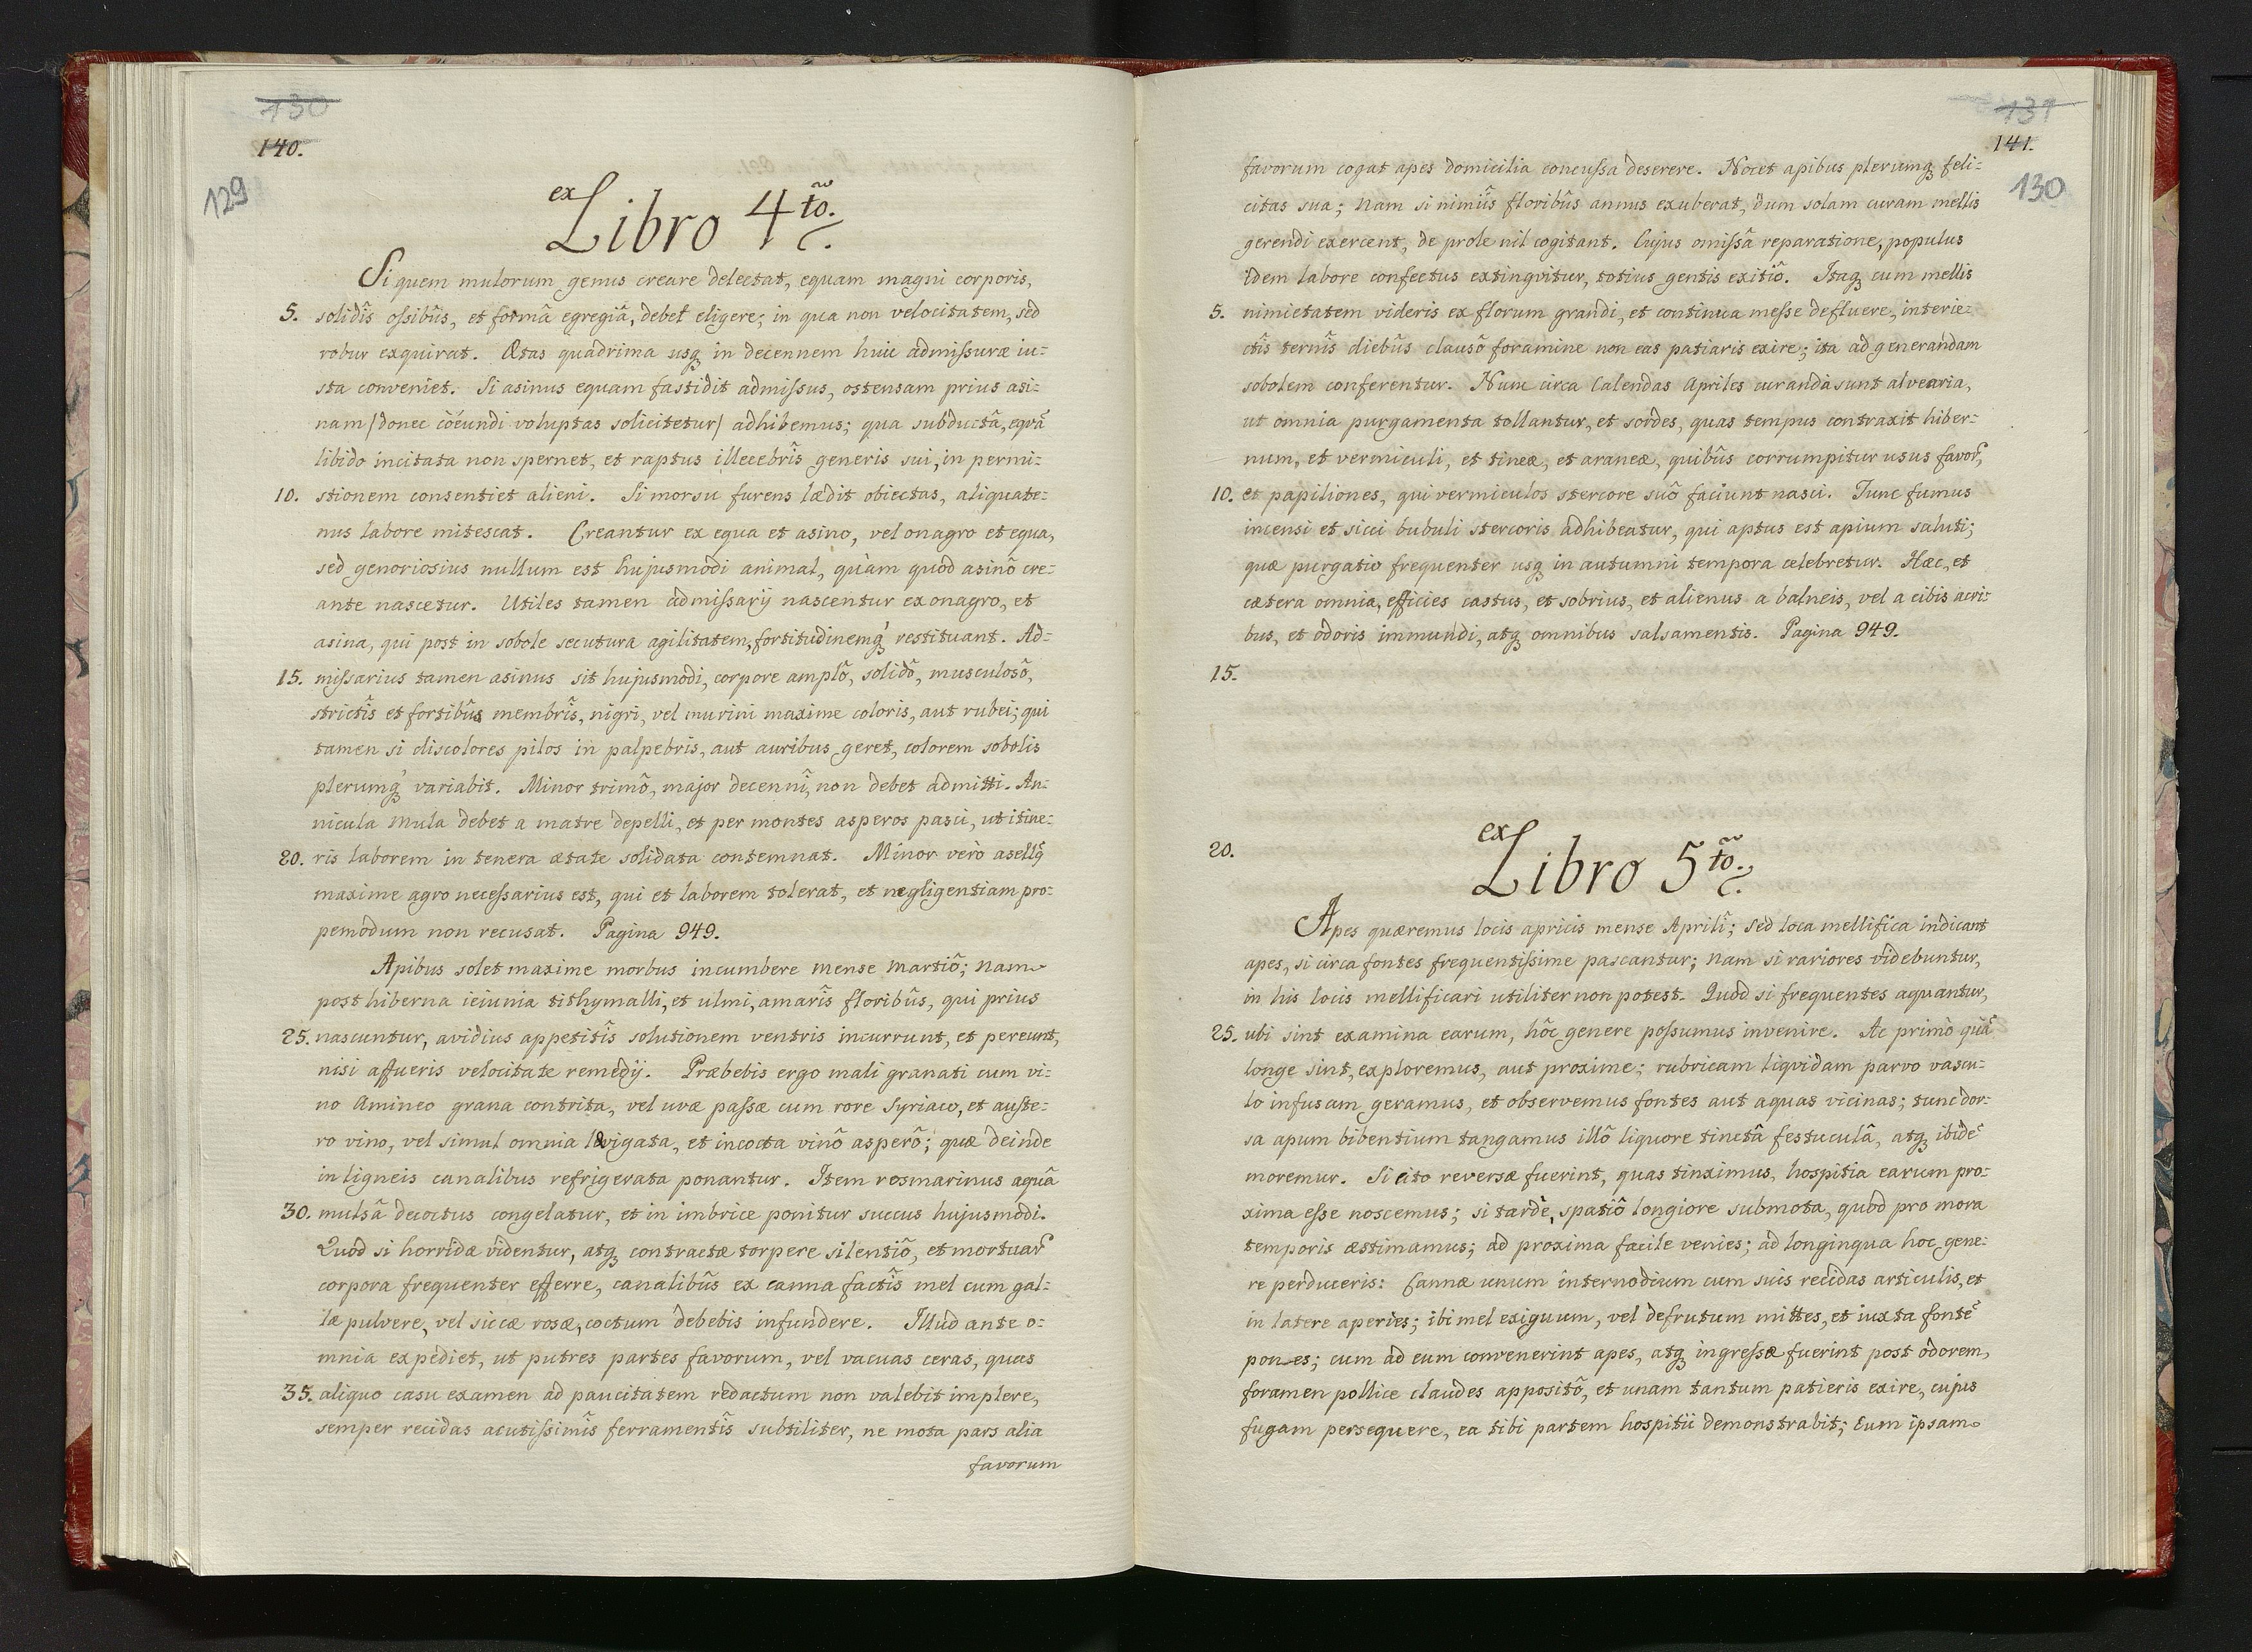 130
140.
129
ex
Libro 4to.
Si quem mulorum genus creare delectat, equam magni corporis,
5. solidîs ossibûs, et formâ egregiâ, debet eligere; in qua non velocitatem, sed
robur exquirat. Ætas quadrima usq₃ in decennem huic admissuræ iu=
sta conveniet. Si asinus equam fastidit admissus, ostensam prius asi=
nam /donec cöeundi voluptas solicitetur/ adhibemus; qua subductâ, eqvã
libido incitata non spernet, et raptus illecebrîs generis sui, in permi=
10. stionem consentiet alieni. Si morsu furens lædit obiectas, aliquate=
nus labore mitescat. Creantur ex equa et asino, vel onagro et equa,
sed genoriosius nullum est hujusmodi animal, quàm quod asinô cre=
ante nascetur. Utiles tamen admissarij nascentur ex onagro, et
asina, qui post in sobole secutura agilitatem, fortitudinemq₃ restituant. Ad=
15. missarius tamen asinus sit hujusmodi, corpore amplô, solidô, musculosô,
strictîs et fortibûs membrîs, nigri, vel murini maxime coloris, aut rubei; qui
tamen si discolores pilos in palpebris, aut auribus geret, colorem sobolis
plerumq₃ variabit. Minor trimô, major decennî, non debet admitti. An=
nicula mula debet a matre depelli, et per montes asperos pasci, ut itine=
20. ris laborem in tenera ætate solidata contemnat. Minor verò asellq̃
maxime agro necessarius est, qui et laborem tolerat, et negligentiam pro=
pemodum non recusat. Pagina 949.
Apibus solet maxime morbus incumbere mense Martiô; nam
post hiberna ieiunia tithymalli, et ulmi, amarîs floribûs, qui prius
25. nascuntur, avidius appetitîs solutionem ventris incurrunt, et pereunt,
nisi affueris velocitate remedij. Præbebis ergo mali granati cum vi=
no Amineo grana contrita, vel uvæ passæ cum rore Syriaco, et auste=
ro vino, vel simul omnia lævigata, et incocta vinô asperô; quæ deinde
in ligneis canalibus refrigerata ponantur. Item rosmarinus aquâ
30. mulsâ decoctus congelatur, et in imbrice ponitur succus hujusmodi.
Quod si horridæ videntur, atq₃ contractæ torpere silentiô, et mortuar̃
corpora frequenter efferre, canalibûs ex canna factîs mel cum gal=
læ pulvere, vel siccæ rosæ, coctum debebis infundere. Illud ante o=
mnia expediet, ut putres partes favorum, vel vacuas ceras, quas
35. aliquo casu examen ad paucitatem redactum non valebit implere,
semper recidas acutissimîs ferramentîs subtiliter, ne mota pars alia
favorum
131
141.
130
favorum cogat apes domicilia concussa deserere. Nocet apibus plerumq₃ feli=
citas sua; Nam si nimiîs floribûs annus exuberat, dum solam curam mellis
gerendi exercent, de prole nil cogitant. Cujus omissâ reparatione, populus
idem labore confectus extingvitur, totius gentis exitiô. Itaq₃ cum mellis
5. nimietatem videris ex florum grandi, et continua messe defluere, interie=
ctîs ternîs diebûs clausô foramine non eas patiaris exire; ita ad generandam
sobolem conferentur. Nunc circa Calendas Apriles curanda sunt alvearia,
ut omnia purgamenta tollantur, et sordes, quas tempus contraxit hiber=
num, et vermiculi, et tineæ, et araneæ, quibûs corrumpitur usus favor̃,
10. et papiliones, qui vermiculos stercore suô faciunt nasci. Tunc fumus
incensi et sicci bubuli stercoris adhibeatur, qui aptus est apium saluti;
quæ purgatio frequenter usq₃ in autumni tempora celebretur. Hæc, et
cætera omnia, efficies castus, et sobrius, et alienus a balneis, vel a cibis acri=
bus, et odoris immundi, atq₃ omnibus salsamentis. Pagina 949.
15.
20.
ex
Libro 5to.
Apes quæremus locis apricis mense Aprilî; sed loca mellifica indicant
apes, si circa fontes frequentissime pascantur; nam si rariores videbuntur,
in his locis mellificari utiliter non potest. Quod si frequentes aquantur,
25. ubi sint examina earum, hôc genere possumus invenire. Ac primò quã
longe sint, exploremus, aut proxime; rubricam liqvidam parvo vascu=
lo infusam geramus, et observemus fontes aut aquas vicinas; tunc dor=
sa apum bibentium tangamus illô liquore tinctâ festuculâ, atq₃ ibidẽ
moremur. Si cito reversæ fuerint, quas tinximus, hospitia earum pro=
xima esse noscemus; si tardè, spatiô longiore submota, quod pro mora
temporis æstimamus; ad proxima facile venies; ad longinqua hoc gene=
re perduceris: Cannæ unum internodium cum suis recidas articulis, et
in latere aperies; ibi mel exiguum, vel defrutum mittes, et iuxta fontẽ
pones; cum ad eum convenerint apes, atq₃ ingressæ fuerint post odorem,
foramen pollice claudes appositô, et unam tantum patieris exire, cujus
fugam persequere, ea tibi partem hospitii demonstrabit; Eum ipsam